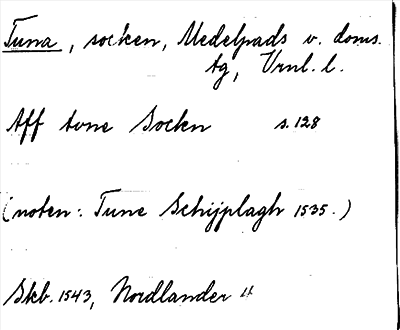 Tuna, socken, Medelpads v. doms.
tg, Vrnl. l.
Aff tvne Sockn s. 128
(noten: Tune Schijplagh 1535.)
Skb. 1543, Nordlander 4